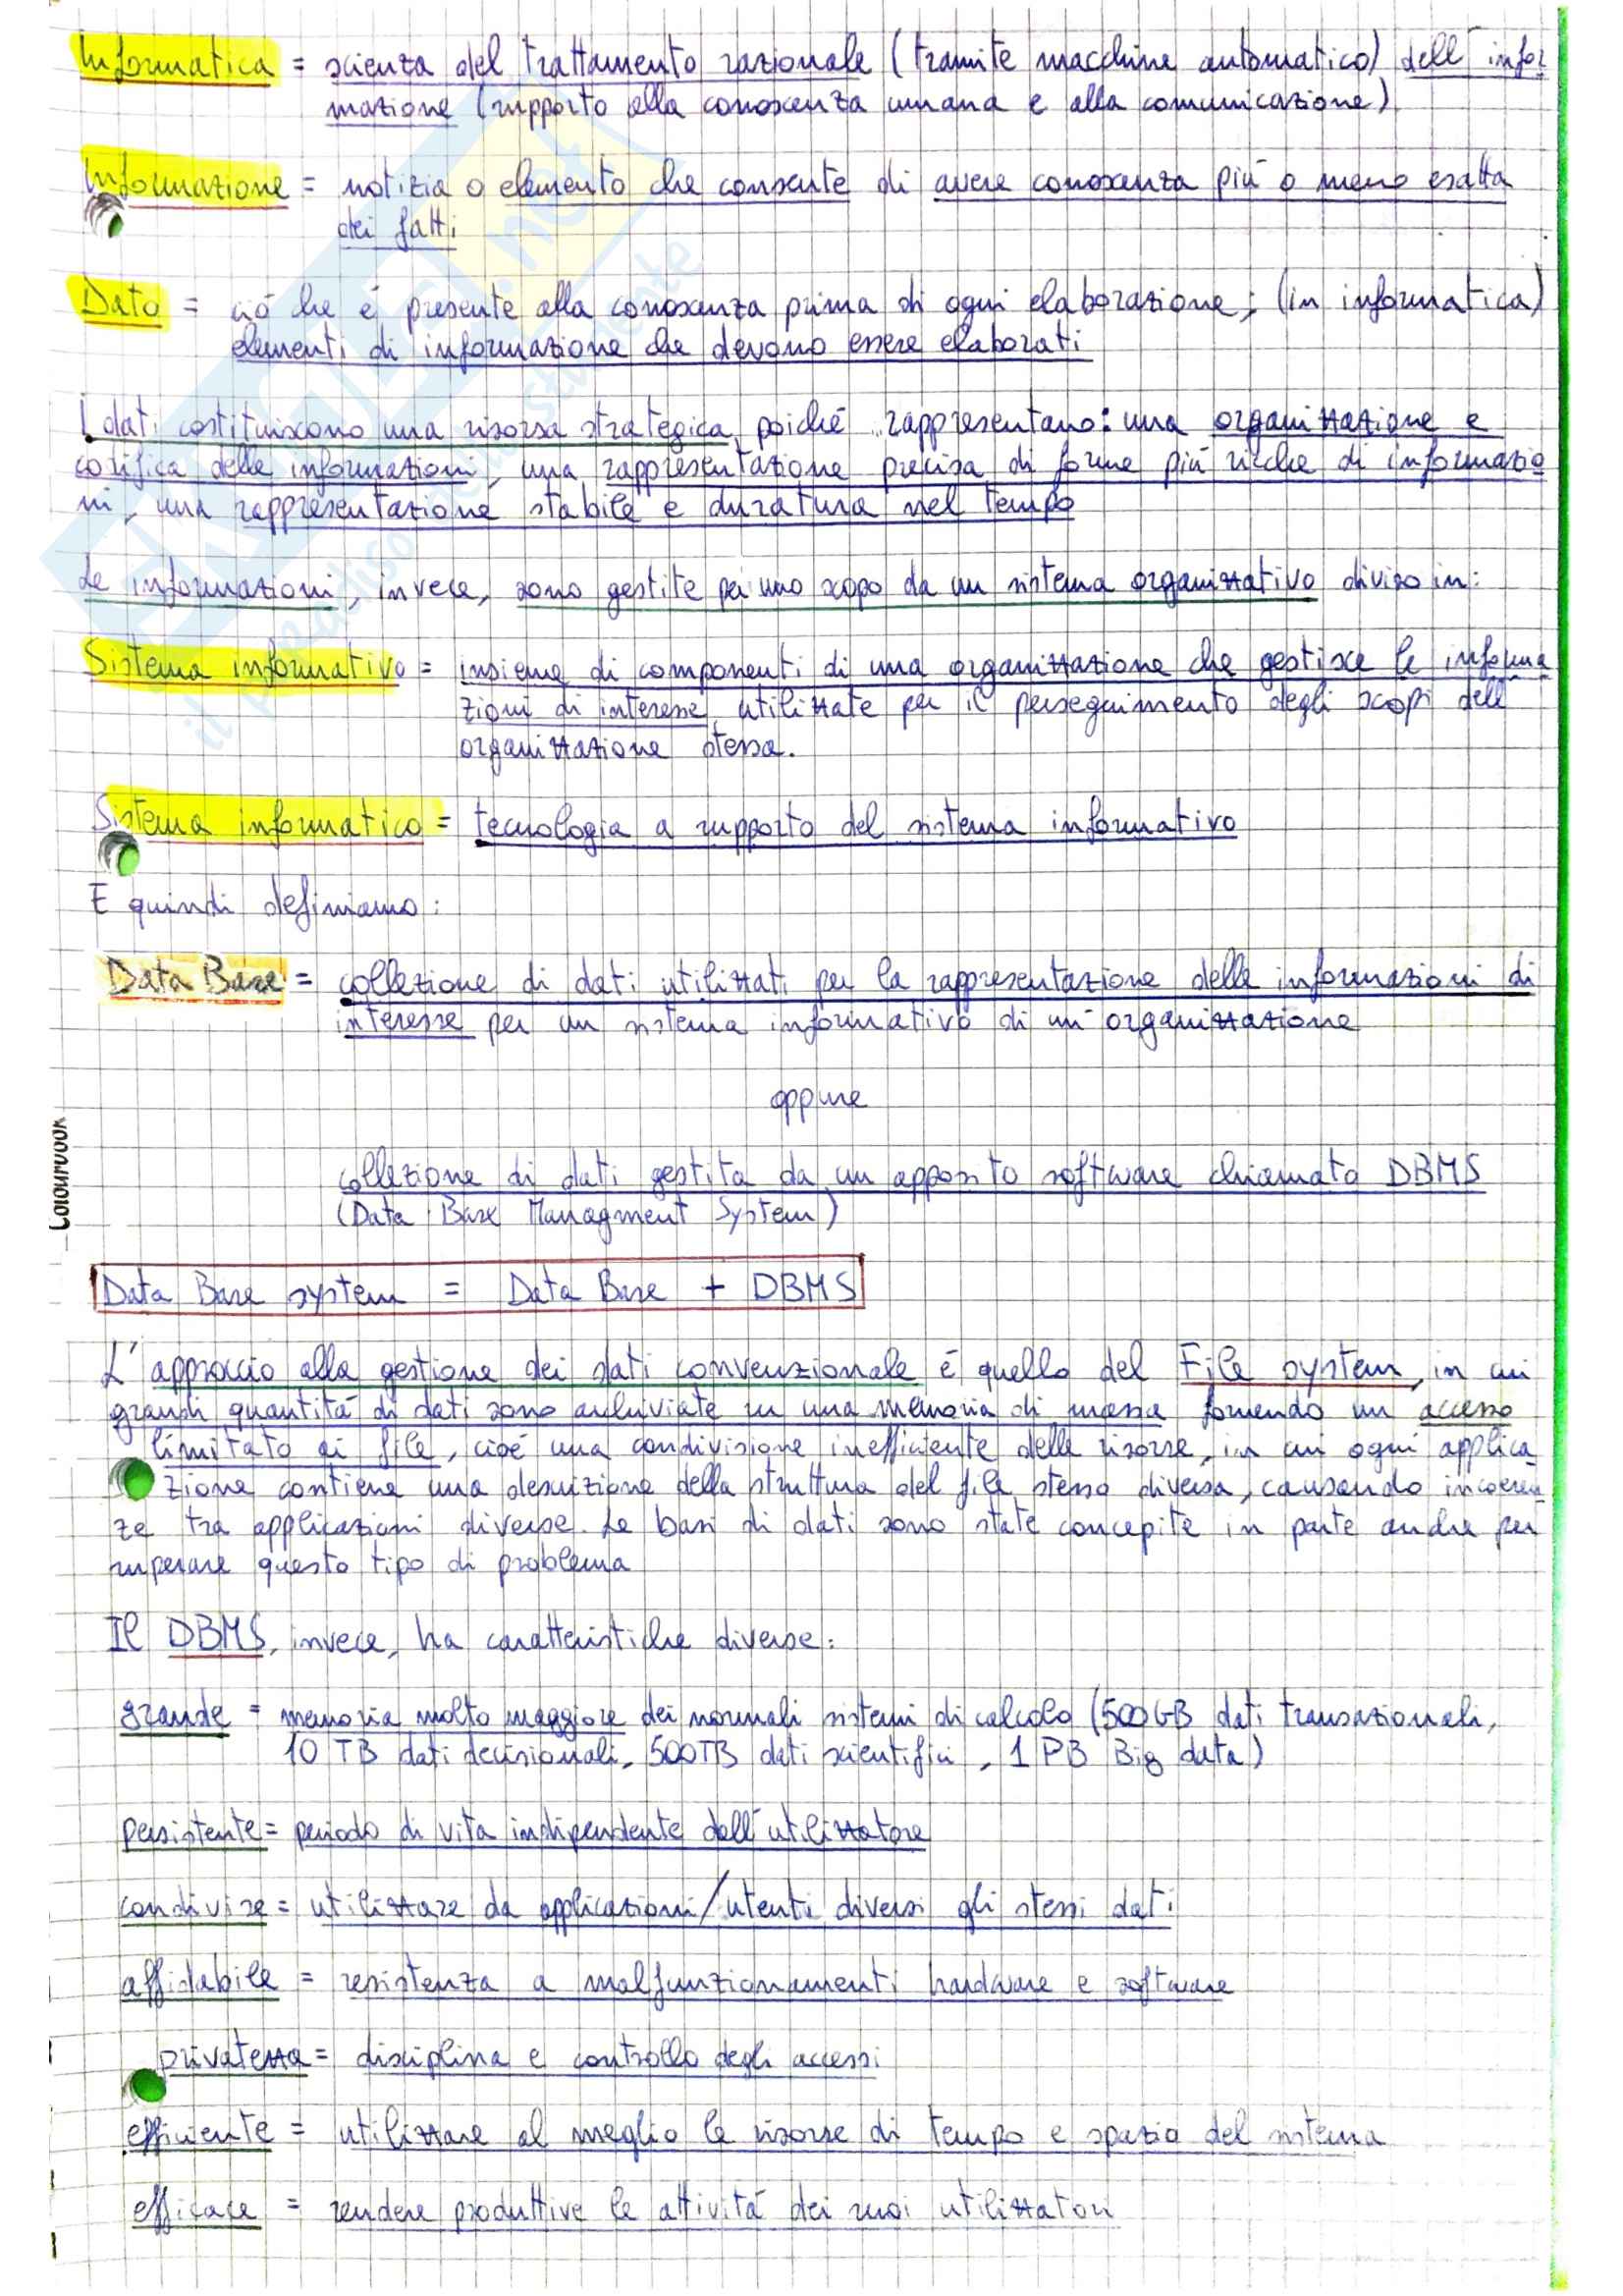 Informatica = scienza del trattamento razionale (tramite macchine automatico) dell'infor
mazione (supporto alla conoscenza umana e alla comunicazione)
Informazione = notizia o elemento che consente di avere conoscenza più o meno esatta
dei fatti
Dato = ciò che è presente alla conoscenza prima di ogni elaborazione; (in informatica)
elementi di informazione che devono essere elaborati
I dati costituiscono una risorsa strategica poiché rappresentano: una organizzazione e
codifica delle informazioni, una rappresentazione precisa di forme più ricche di informazio
ni, una rappresentazione stabile e duratura nel tempo
Le informazioni, invece, sono gestite per uno scopo da un sistema organizzativo diviso in:
Sistema informativo = insieme di componenti di una organizzazione che gestisce le informa
zioni di interesse utilizzate per il perseguimento degli scopi dell'
organizzazione stessa.
Sistema informatico = tecnologia a supporto del sistema informativo
E quindi definiamo:
Data Base = collezione di dati utilizzati per la rappresentazione delle informazioni di
interesse per un sistema informativo di un'organizzazione
oppure
collezione di dati gestita da un apposito software chiamato DBMS
(Data Base Managment System)
Colourbook
Data Base system = Data Base + DBMS
L'approccio alla gestione dei dati convenzionale è quello del File system, in cui
grandi quantità di dati sono archiviate su una memoria di massa fornendo un accesso
limitato ai file, cioè una condivisione inefficiente delle risorse, in cui ogni applica
zione contiene una descrizione della struttura del file stesso diversa, causando incoeren
ze tra applicazioni diverse. Le basi di dati sono state concepite in parte anche per
superare questo tipo di problema
Il DBMS, invece, ha caratteristiche diverse:
grande = memoria molto maggiore dei normali sistemi di calcolo (500GB dati transazionali,
10 TB dati decisionali, 500TB dati scientifici, 1 PB Big data)
persistente = periodo di vita indipendente dall'utilizzatore
condivise = utilizzare da applicazioni/utenti diversi gli stessi dati
affidabile = resistenza a malfunzionamenti hardware e software
privatezza = disciplina e controllo degli accessi
efficiente = utilizzare al meglio le risorse di tempo e spazio del sistema
efficace = rendere produttive le attività dei suoi utilizzatori